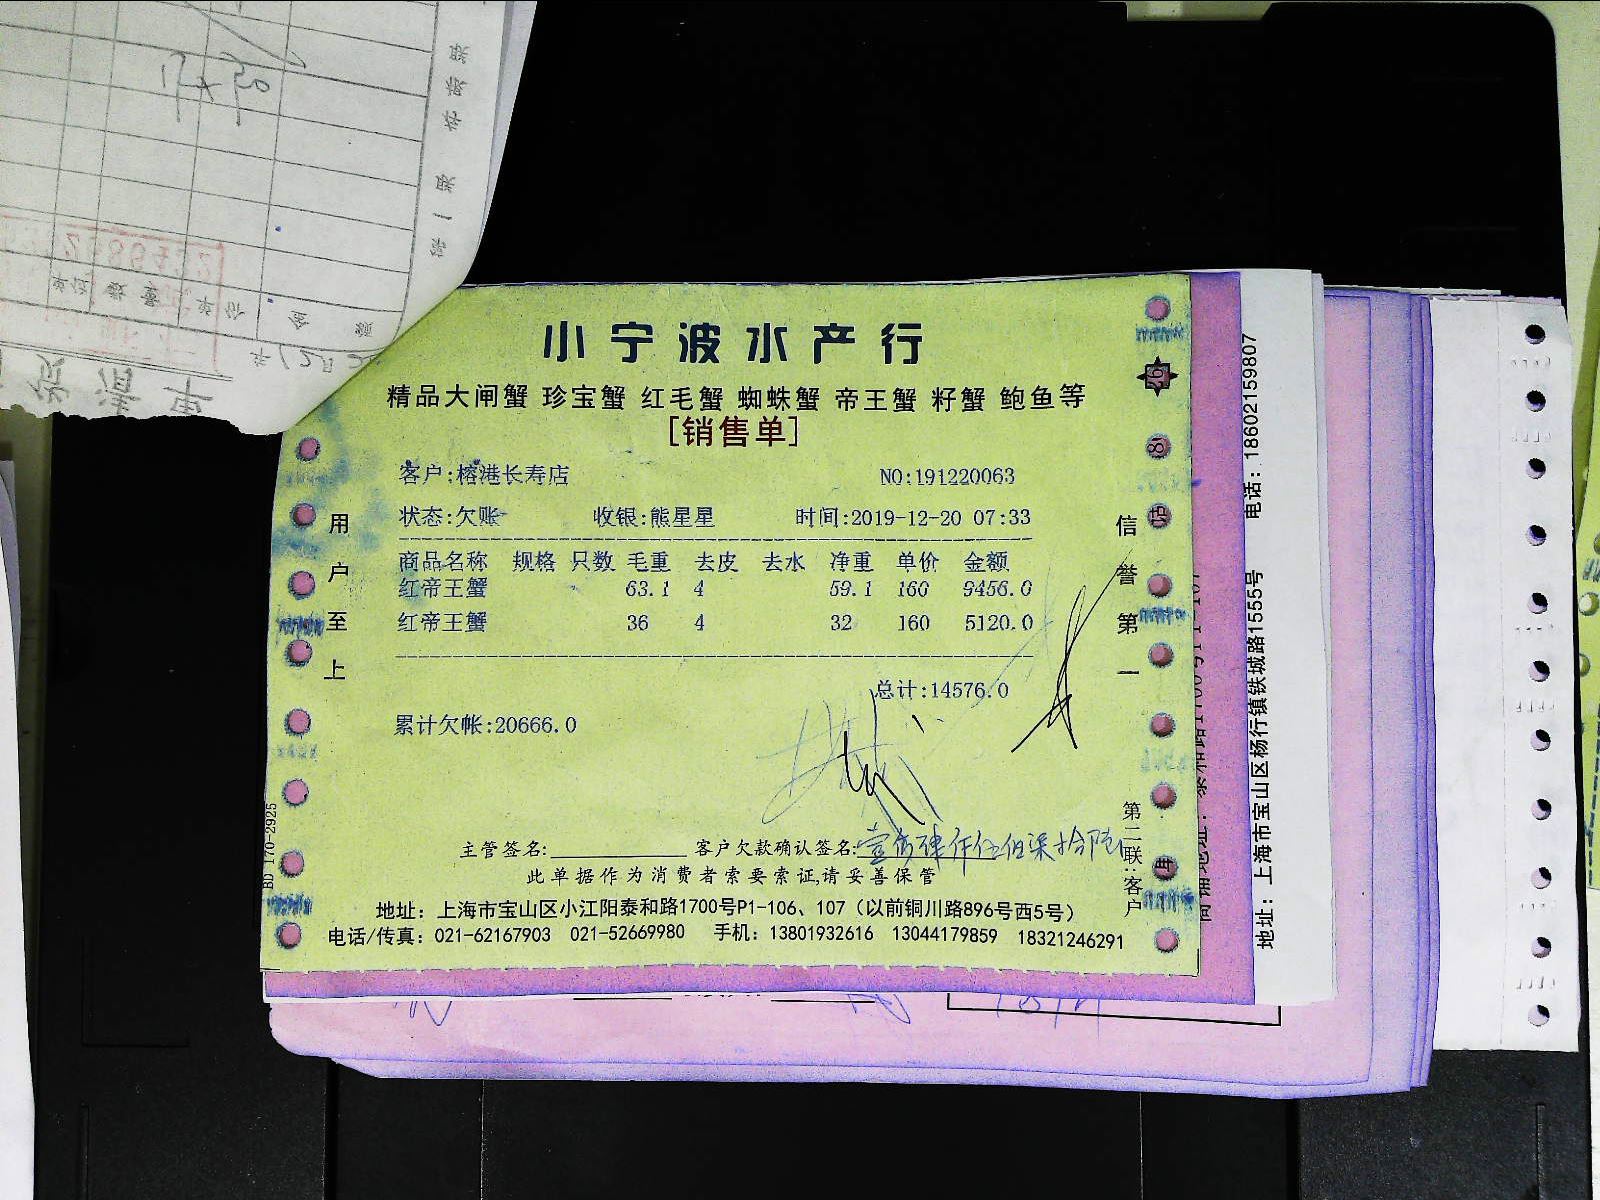 小宁波水产行
精品大闸蟹 珍宝蟹 红毛蟹 蜘蛛蟹 帝王蟹 籽蟹 鲍鱼等
[销售单]
客户:榕港长寿店 NO:191220063
状态:欠账 收银:熊星星 时间:2019-12-20 07:33
商品名称 规格 只数 毛重 去皮 去水 净重 单价 金额
红帝王蟹 63.1 4 59.1 160 9456.0
红帝王蟹 36 4 32 160 5120.0
总计:14576.0
累计欠帐:20666.0
主管签名: 客户欠款确认签名:壹万肆仟伍佰柒拾陆
此单据作为消费者索要索证,请妥善保管
地址：上海市宝山区小江阳泰和路1700号P1-106、107（以前铜川路896号西5号）
电话/传真：021-62167903 021-52669980 手机：13801932616 13044179859 18321246291
用户至上
信誉第一
第二联:客户
BD 170-2925
地址：上海市宝山区杨行镇铁城路1555号 电话：18602159807
第一联 存根联
单位 数量 单价 金额
清单